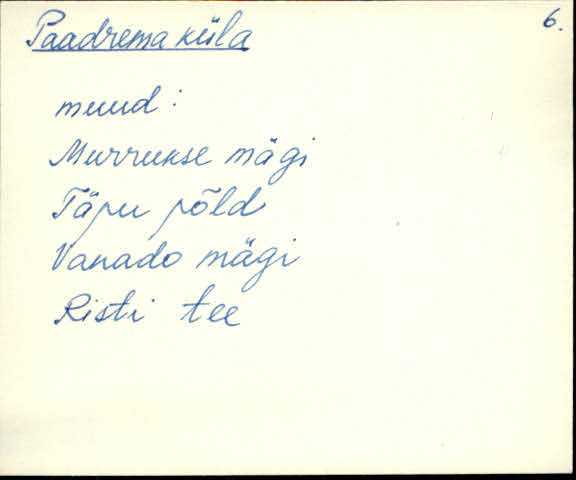 Paadrema küla 6.
muud:
Murrukse mägi
Täpu põld
Vanado mägi
Risti tee